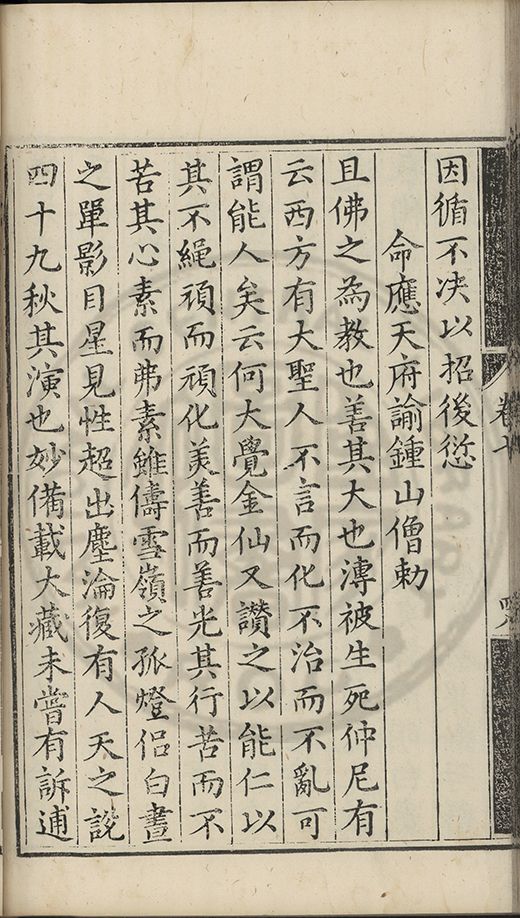 因循不決以招後愆
命應天府諭鍾山僧勅
且佛之為教也善其大也溥被生死仲尼有
云西方有大聖人不言而化不治而不亂可
謂能人矣云何大覺金仙又讚之以能仁以
其不繩頑而頑化羙善而善光其行苦而不
苦其心素而弗素雖儔雪嶺之孤燈侶白晝
之單影目星見性超出塵淪復有人天之說
四十九秋其演也妙備載大藏未嘗有訴逋
卷十